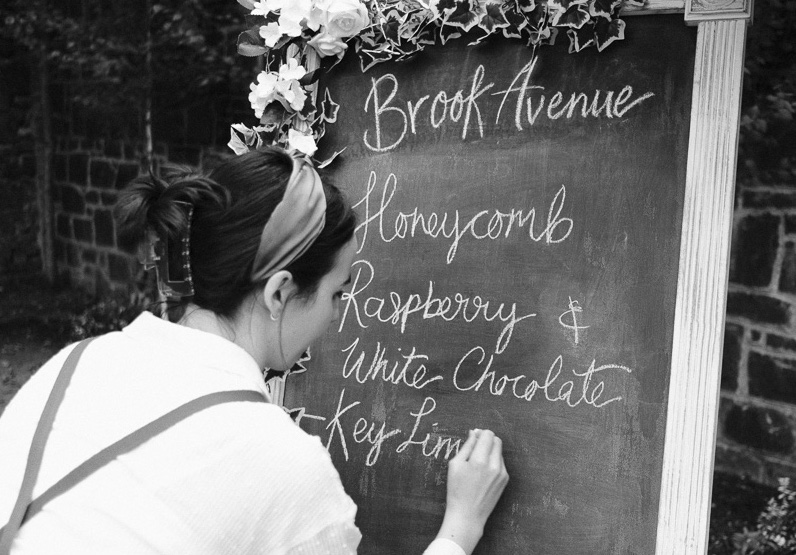 Brook Avenue
Honeycomb
Raspberry &
White Chocolate
Key Lim